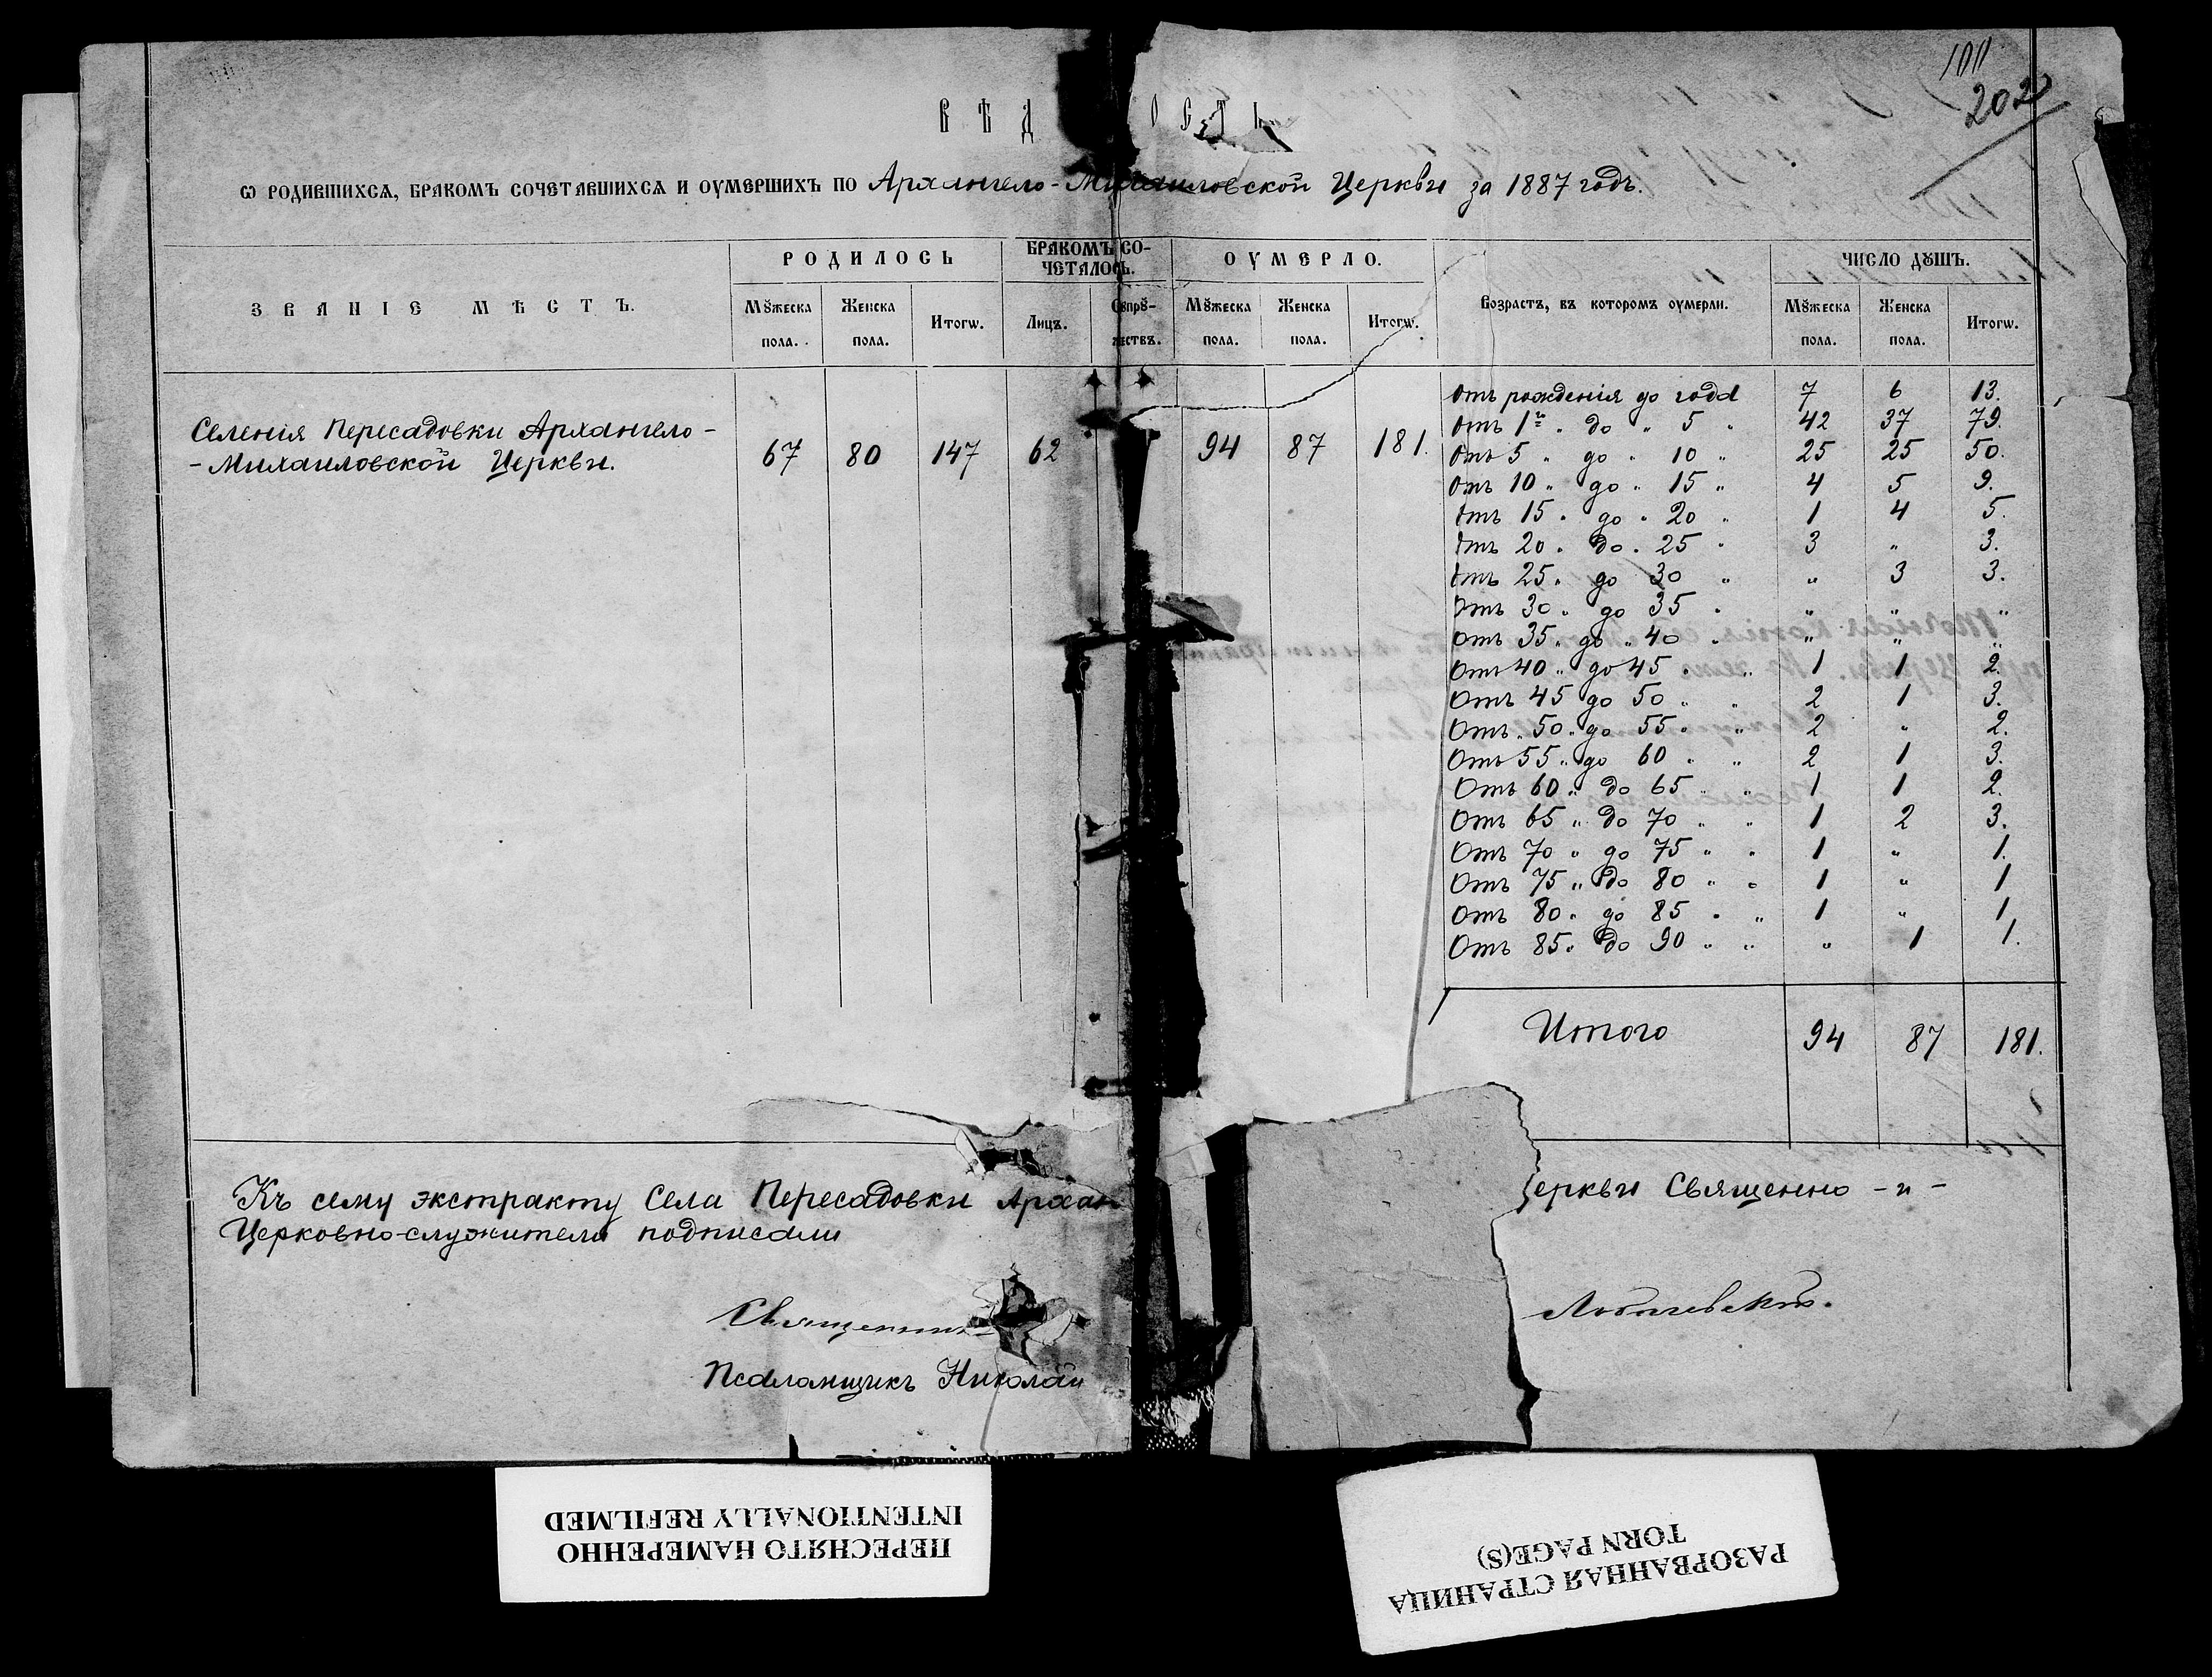 202
ВѢД ОСТЬ
Ѡ РОДИВШИХСѦ, БРАКОМЪ СОЧЕТАВШИХСѦ И ОУМЕРШИХЪ ПО Архангело-Михаиловской Церкви за 1887 годъ.
ЗВАНІЕ МѢСТЪ.
РОДИЛОСЬ
БРАКОМЪ СО-
ЧЕТАЛОСЬ.
ОУМЕРЛО.
Возрастъ, въ которомъ оумерли.
ЧИСЛО ДꙊШЪ.
Мꙋжеска пола. Женска пола. Итогѡ. Лицъ. Сꙋпрꙋ-жествъ. Мꙋжеска пола. Женска пола. Итогѡ. Мꙋжеска пола. Женска пола. Итогѡ.
Селенія Пересадовки Архангело-
-Михаиловской Церкви. 67 80 147 62 94 87 181.
Отъ рожденія до года 7 6 13.
Отъ 1го " до " 5 " 42 37 79.
Отъ 5 " до " 10 " 25 25 50.
Отъ 10 " до " 15 " 4 5 9.
Отъ 15 " до " 20 " 1 4 5.
Отъ 20 " до " 25 " 3 " 3.
Отъ 25 " до 30 " " 3 3.
Отъ 30 " до 35 " " " "
Отъ 35 " до " 40 " " " "
Отъ 40 " до 45 " " 1 1 2.
Отъ 45 до 50 " " 2 1 3.
Отъ " 50 " до 55 " " 2 " 2.
Отъ 55 " до 60 " " 2 1 3.
Отъ 60 " до 65 " " 1 1 2.
Отъ 65 " до 70 " " 1 2 3.
Отъ 70 " до 75 " " 1 " 1.
Отъ 75 " до 80 " " 1 " 1
Отъ 80 " до 85 " " 1 " 1.
Отъ 85 " до 90 " " " 1 1.
Итого 94 87 181.
Къ сему экстракту Села Пересадовки Архан еркви Священно - и -
Церковно-служители подписали
Священник
Псаломщикъ Николай
ПЕРЕСНЯТО НАМЕРЕННО
INTENTIONALLY REFILMED
РАЗОРВАННАЯ СТРАНИЦА
TORN PAGE(S)